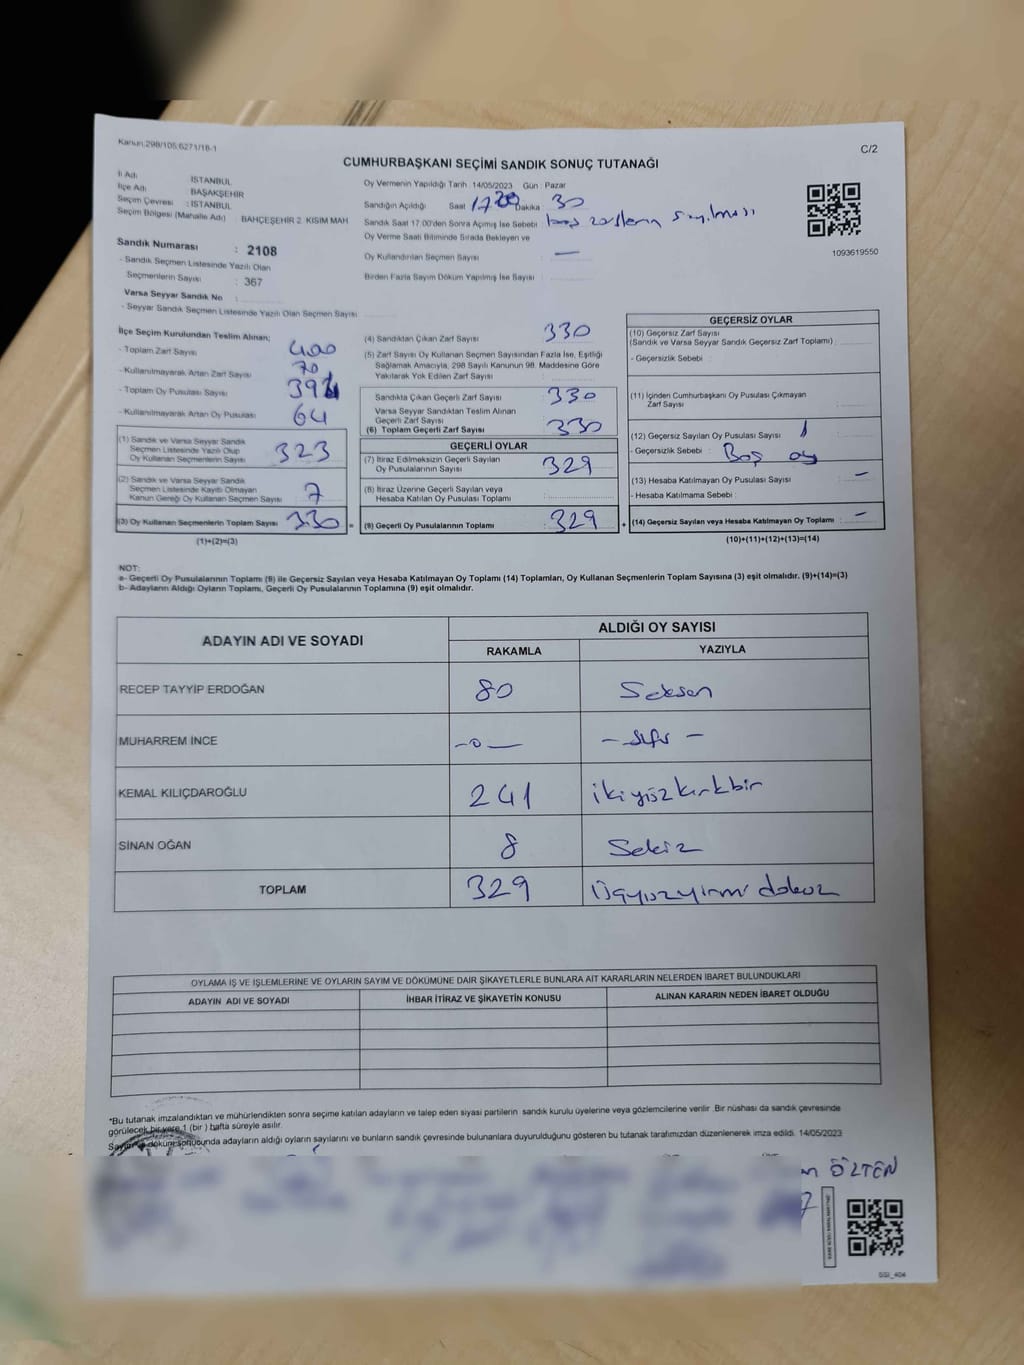 Kanun:298/105;6271/18-1
C/2
CUMHURBAŞKANI SEÇİMİ SANDIK SONUÇ TUTANAĞI
İl Adı İSTANBUL
İlçe Adı BAŞAKŞEHİR
Seçim Çevresi : İSTANBUL
Seçim Bölgesi (Mahalle Adı) BAHÇEŞEHİR 2. KISIM MAH
Sandık Numarası : 2108
- Sandık Seçmen Listesinde Yazılı Olan
Seçmenlerin Sayısı : 367
Varsa Seyyar Sandık No :
- Seyyar Sandık Seçmen Listesinde Yazılı Olan Seçmen Sayısı
Oy Vermenin Yapıldığı Tarih 14/05/2023 Gün : Pazar
Sandığın Açıldığı Saat Dakika 30
Sandık Saat 17.00'den Sonra Açımış İse Sebebi : boş zarfların sayılması
Oy Verme Saati Bitiminde Sırada Bekleyen ve
Oy Kullandırılan Seçmen Sayısı : —
Birden Fazla Sayım Döküm Yapılmış İse Sayısı
1093619550
İlçe Seçim Kurulundan Teslim Alınan;
- Toplam Zarf Sayısı 400
- Kullanılmayarak Artan Zarf Sayısı 70
- Toplam Oy Pusulası Sayısı
- Kullanılmayarak Artan Oy Pusulası 64
(1) Sandık ve Varsa Seyyar Sandık
Seçmen Listesinde Yazılı Olup
Oy Kullanan Seçmenlerin Sayısı 323
(2) Sandık ve Varsa Seyyar Sandık
Seçmen Listesinde Kayıtlı Olmayan
Kanun Gereği Oy Kullanan Seçmen Sayısı 7
(3) Oy Kullanan Seçmenlerin Toplam Sayısı 330 =
(1)+(2)=(3)
(4) Sandıktan Çıkan Zarf Sayısı 330
(5) Zarf Sayısı Oy Kullanan Seçmen Sayısından Fazla İse, Eşitliği
Sağlamak Amacıyla, 298 Sayılı Kanunun 98. Maddesine Göre
Yakılarak Yok Edilen Zarf Sayısı
Sandıkta Çıkan Geçerli Zarf Sayısı 330
Varsa Seyyar Sandıktan Teslim Alınan
Geçerli Zarf Sayısı
(6) Toplam Geçerli Zarf Sayısı 330
GEÇERLİ OYLAR
(7) İtiraz Edilmeksizin Geçerli Sayılan
Oy Pusulalarının Sayısı 329
(8) İtiraz Üzerine Geçerli Sayılan veya
Hesaba Katılan Oy Pusulası Toplamı
(9) Geçerli Oy Pusulalarının Toplamı 329 +
GEÇERSİZ OYLAR
(10) Geçersiz Zarf Sayısı
(Sandık ve Varsa Seyyar Sandık Geçersiz Zarf Toplamı) :
- Geçersizlik Sebebi :
(11) İçinden Cumhurbaşkanı Oy Pusulası Çıkmayan
Zarf Sayısı
(12) Geçersiz Sayılan Oy Pusulası Sayısı 1
- Geçersizlik Sebebi : Boş oy
(13) Hesaba Katılmayan Oy Pusulası Sayısı —
- Hesaba Katılmama Sebebi :
(14) Geçersiz Sayılan veya Hesaba Katılmayan Oy Toplamı : —
(10)+(11)+(12)+(13)=(14)
NOT:
a- Geçerli Oy Pusulalarının Toplamı (9) ile Geçersiz Sayılan veya Hesaba Katılmayan Oy Toplamı (14) Toplamları, Oy Kullanan Seçmenlerin Toplam Sayısına (3) eşit olmalıdır. (9)+(14)=(3)
b- Adayların Aldığı Oyların Toplamı, Geçerli Oy Pusulalarının Toplamına (9) eşit olmalıdır.
ADAYIN ADI VE SOYADI ALDIĞI OY SAYISI
RAKAMLA YAZIYLA
RECEP TAYYİP ERDOĞAN 80 Seksen
MUHARREM İNCE -0- - sıfır -
KEMAL KILIÇDAROĞLU 241 ikiyüzkırkbir
SİNAN OĞAN 8 Sekiz
TOPLAM 329 Üçyüzyirmi dokuz
OYLAMA İŞ VE İŞLEMLERİNE VE OYLARIN SAYIM VE DÖKÜMÜNE DAİR ŞİKAYETLERLE BUNLARA AİT KARARLARIN NELERDEN İBARET BULUNDUKLARI
ADAYIN ADI VE SOYADI İHBAR İTİRAZ VE ŞİKAYETİN KONUSU ALINAN KARARIN NEDEN İBARET OLDUĞU
*Bu tutanak imzalandıktan ve mühürlendikten sonra seçime katılan adayların ve talep eden siyasi partilerin sandık kurulu üyelerine veya gözlemcilerine verilir. Bir nüshası da sandık çevresinde
görülecek bir yere 1 (bir) hafta süreyle asılır.
Sayım ve döküm sonucunda adayların aldığı oyların sayılarını ve bunların sandık çevresinde bulunanlara duyurulduğunu gösteren bu tutanak tarafımızdan düzenlenerek imza edildi. 14/05/2023
ÖLTEN
SSI_404